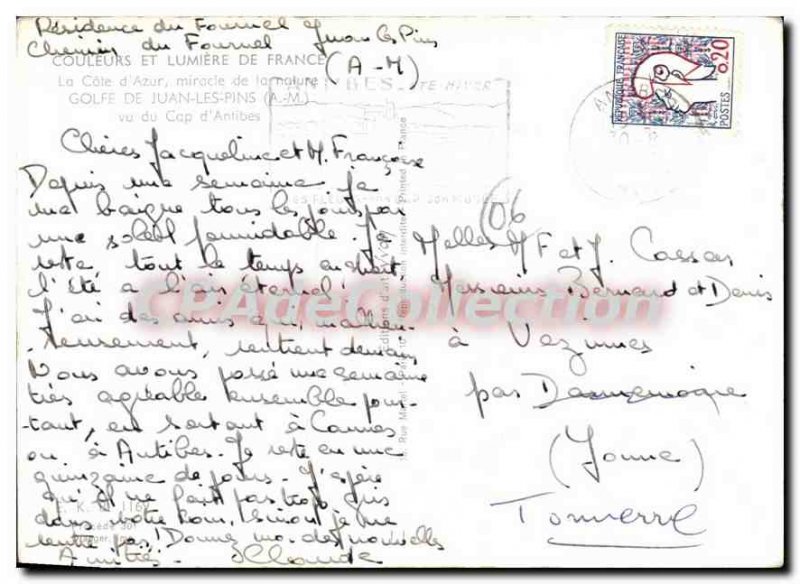 Résidence du Fournel Juan les Pins
Chemin du Fournel
(A-M)
COULEURS ET LUMIÈRE DE FRANCE
La Côte d'Azur, miracle de la nature
GOLFE DE JUAN-LES-PINS (A.-M.)
vu du Cap d'Antibes
ANTIBES ETE HIVER
REPUBLIQUE FRANÇAISE
0,20
POSTES
Chères Jacqueline et M. Françoise
Depuis une semaine je
me baigne tous les jours par
un soleil formidable. Je
reste tout le temps au
l'été a l'air éternel!
J'ai des amis qui, malheu-
reusement, rentrent demain
Nous avons passé une semaine
très agréable ensemble pour-
tant, en sortant à Cannes
ou à Antibes. Je reste en une
quinzaine de jours. J'espère
qu'il ne fait pas trop gris
dans votre sinon je ne
rentre pas! Donne moi des nouvelles
Amitiés. Claude
06
Melles MF et J. Cassas
Messieurs Bernard et Denis
à Vezinnes
par Dannemoine
(Yonne)
Tonnerre
CPAdeCollection
Editions d'art YVON
Printed in France
E. K. B. 1169